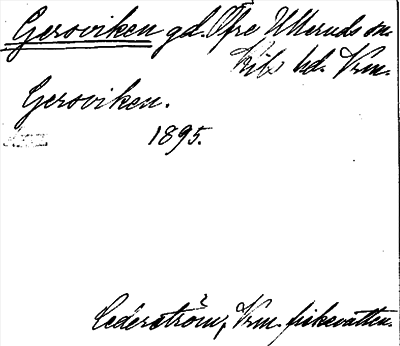 Geroviken gd. Öfre Ulleruds sn.
Kils hd. Vrm.
Geroviken.
1895.
Cederström, Vrm. fiskevatten.